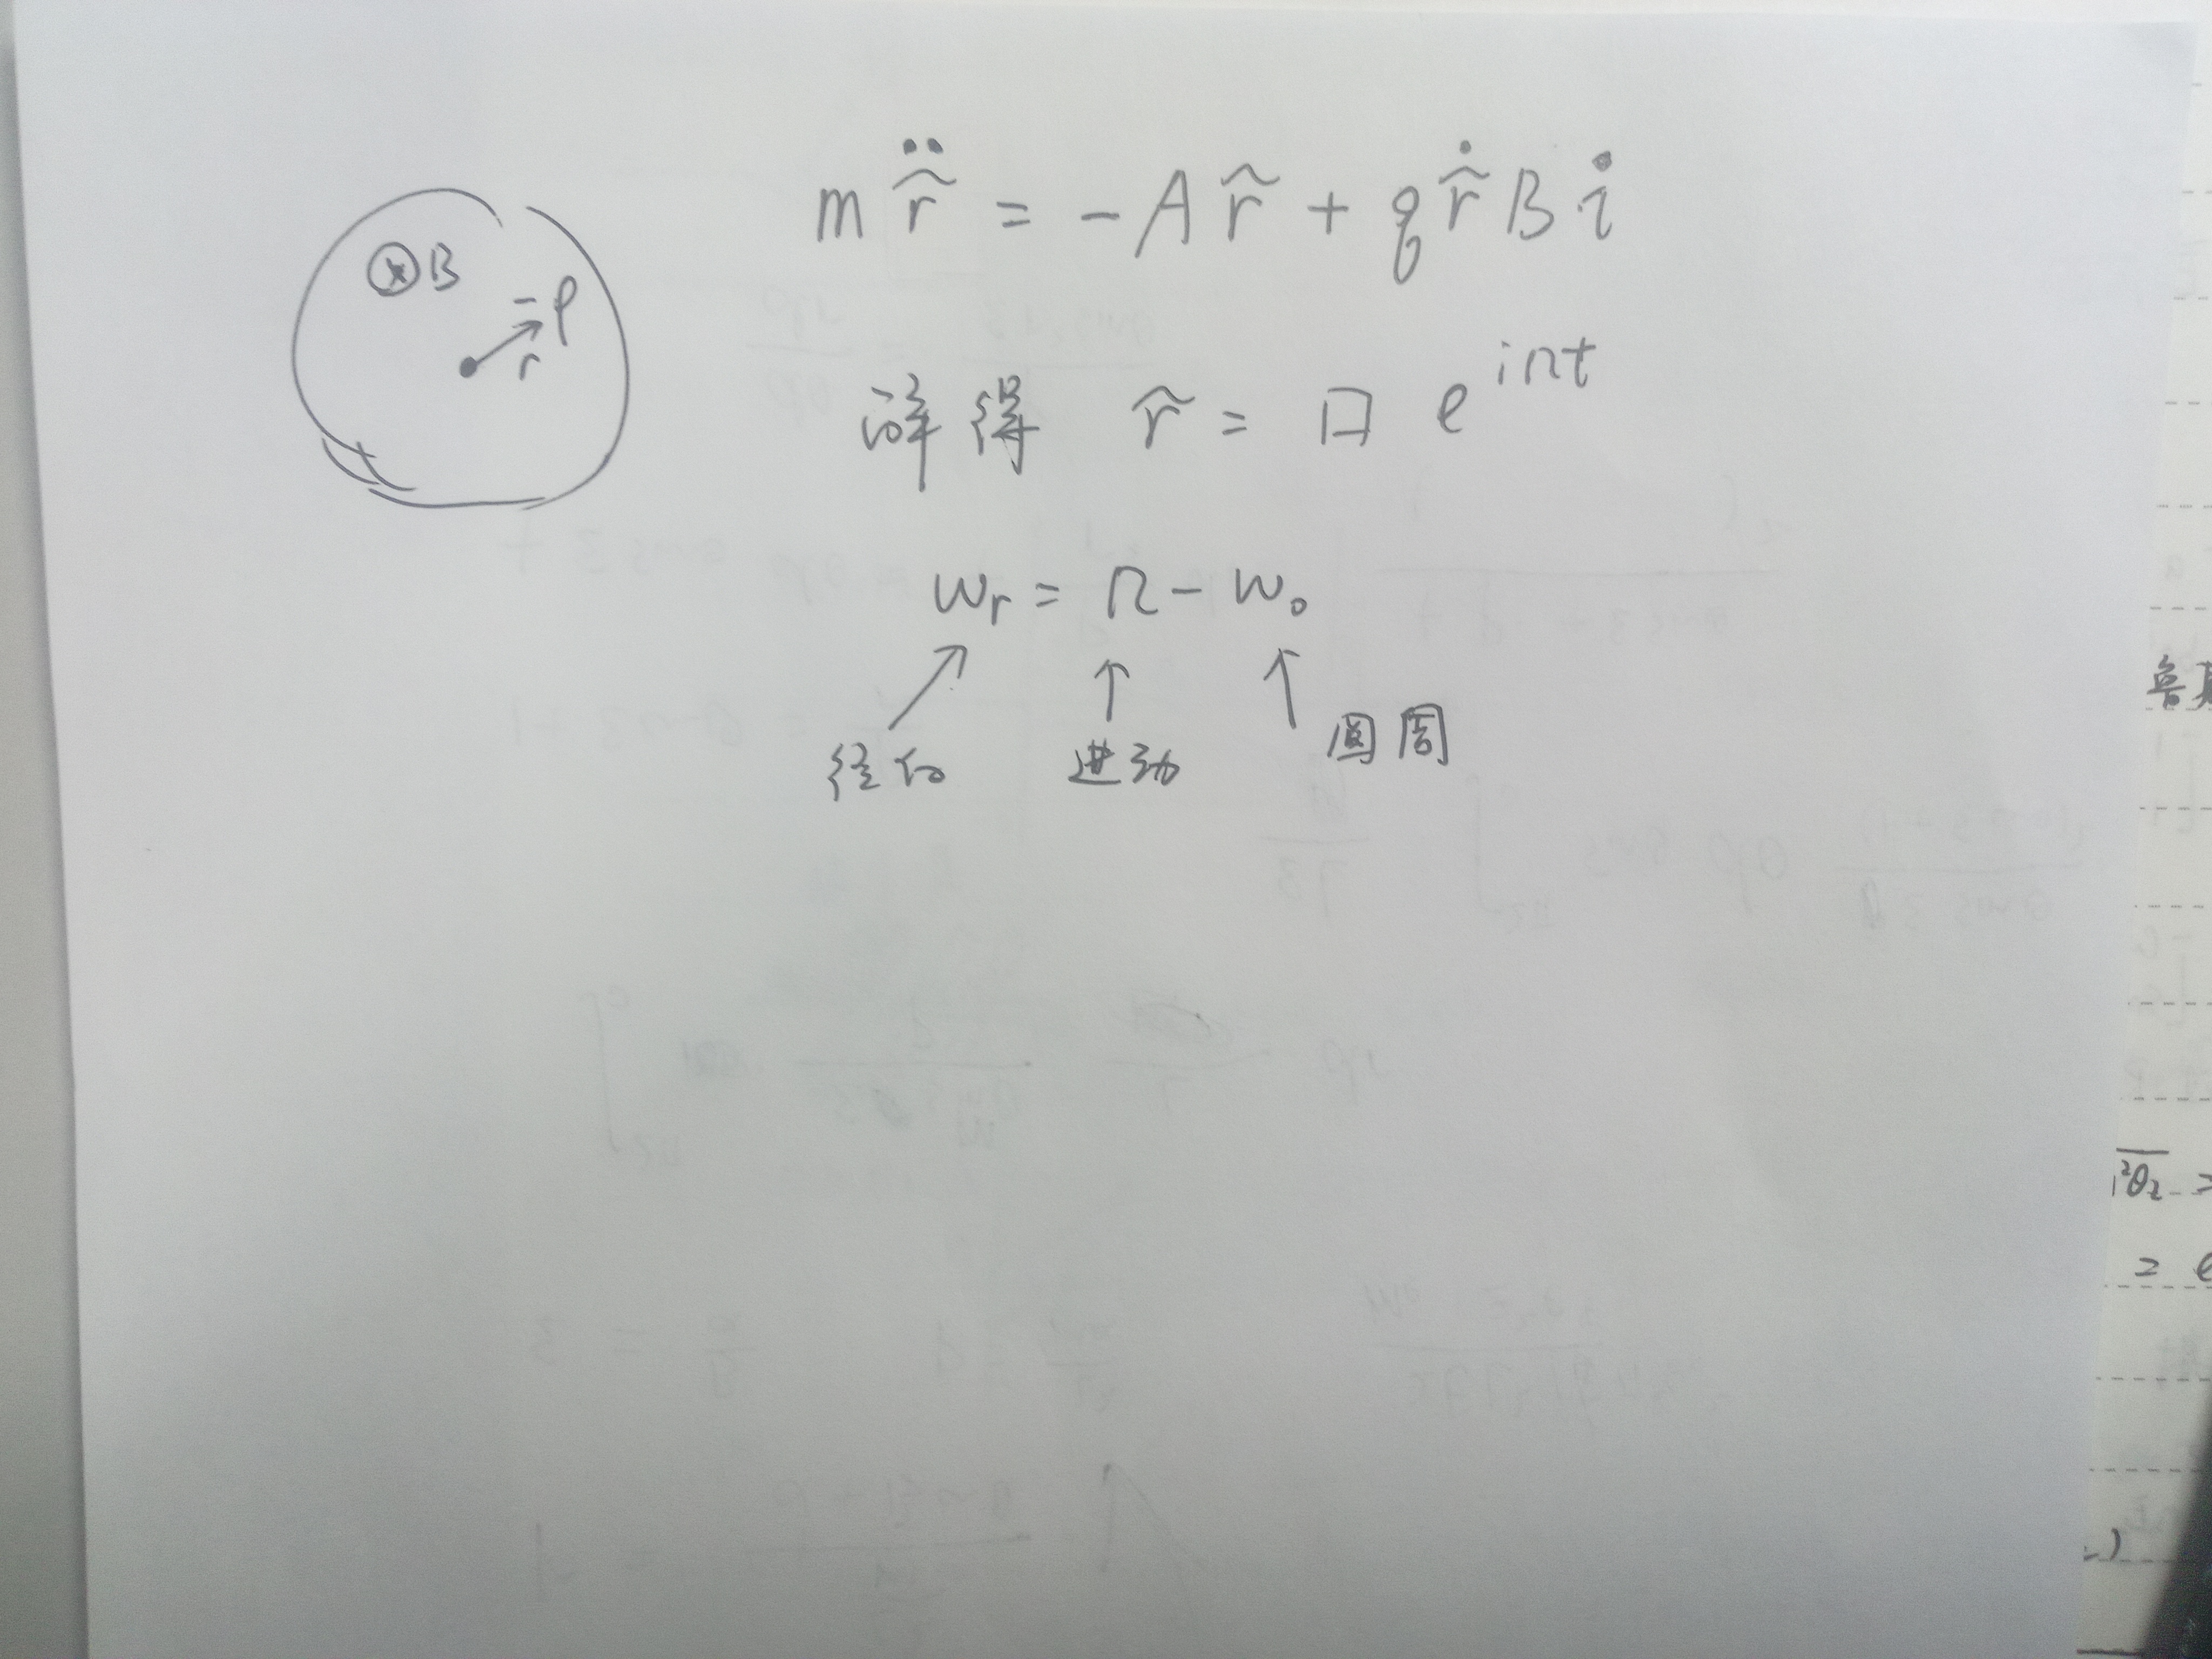 ⊗B
-ρ
r
m r̃̈ = -A r̃ + q r̃̇ B i
解得 r̃ = □ e^{iΩt}
ω_r = Ω - ω_0
径向 进动 圆周
鲁
²θ₂ =
=
)